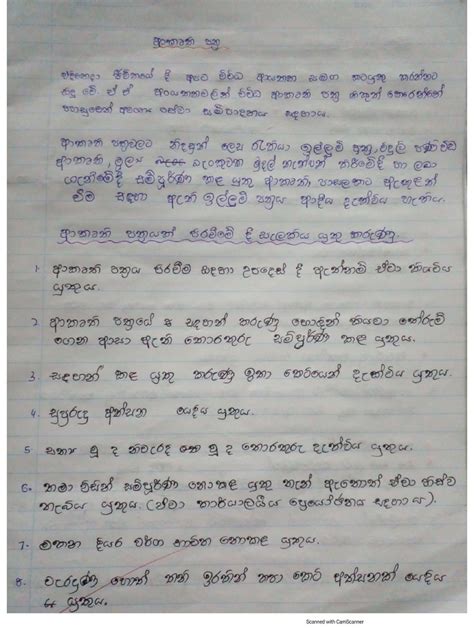 ආකෘති පත්‍ර
එදිනෙදා ජීවිතයේ දී අපට විවිධ ආයතන සමග කටයුතු කරන්නට
සිදු වේ. ඒ ඒ ආයතනවලින් විවිධ ආකෘති පත්‍ර නිකුත් කෙරෙන්නේ
පහසුවෙන් අවශ්‍ය සේවා සම්පාදනය සඳහාය.
ආකෘති පත්‍රවලට නිදසුන් ලෙස රැකියා ඉල්ලුම් පත්‍ර, විදුලි පණිවිඩ
ආකෘති, මූල්‍ය බැංකුවක මුදල් තැන්පත් කිරීමේදී හා ලබා
ගැනීමේදී සම්පූර්ණ කළ යුතු ආකෘති, පාසලකට ඇතුළත්
වීම සඳහා ඇති ඉල්ලුම් පත්‍රය ආදිය දැක්විය හැකිය.
ආකෘති පත්‍රයක් පිරවීමේ දී සැලකිය යුතු කරුණු.
1. ආකෘති පත්‍රය පිරවීම සඳහා උපදෙස් දී ඇත්නම් ඒවා කියවිය
යුතුය.
2. ආකෘති පත්‍රයේ සඳහන් කරුණු හොඳින් කියවා තේරුම්
ගෙන අසා ඇති තොරතුරු සම්පූර්ණ කළ යුතුය.
3. සඳහන් කළ යුතු කරුණු ඉතා කෙටියෙන් දැක්විය යුතුය.
4. සුපුරුදු අත්සන යෙදිය යුතුය.
5. සත්‍ය වූ ද නිවැරදි වූ ද තොරතුරු දැක්විය යුතුය.
6. තමා විසින් සම්පූර්ණ නොකළ යුතු තැන් ඇතොත් ඒවා හිස්ව
තැබිය යුතුය. (ඒවා කාර්යාලයීය ප්‍රයෝජනය සඳහා ය).
7. මකන දියර වර්ග භාවිත නොකළ යුතුය.
8. වැරදුණ හොත් තනි ඉරකින් කපා කෙටි අත්සනක් යෙදිය
යුතුය.
Scanned with CamScanner